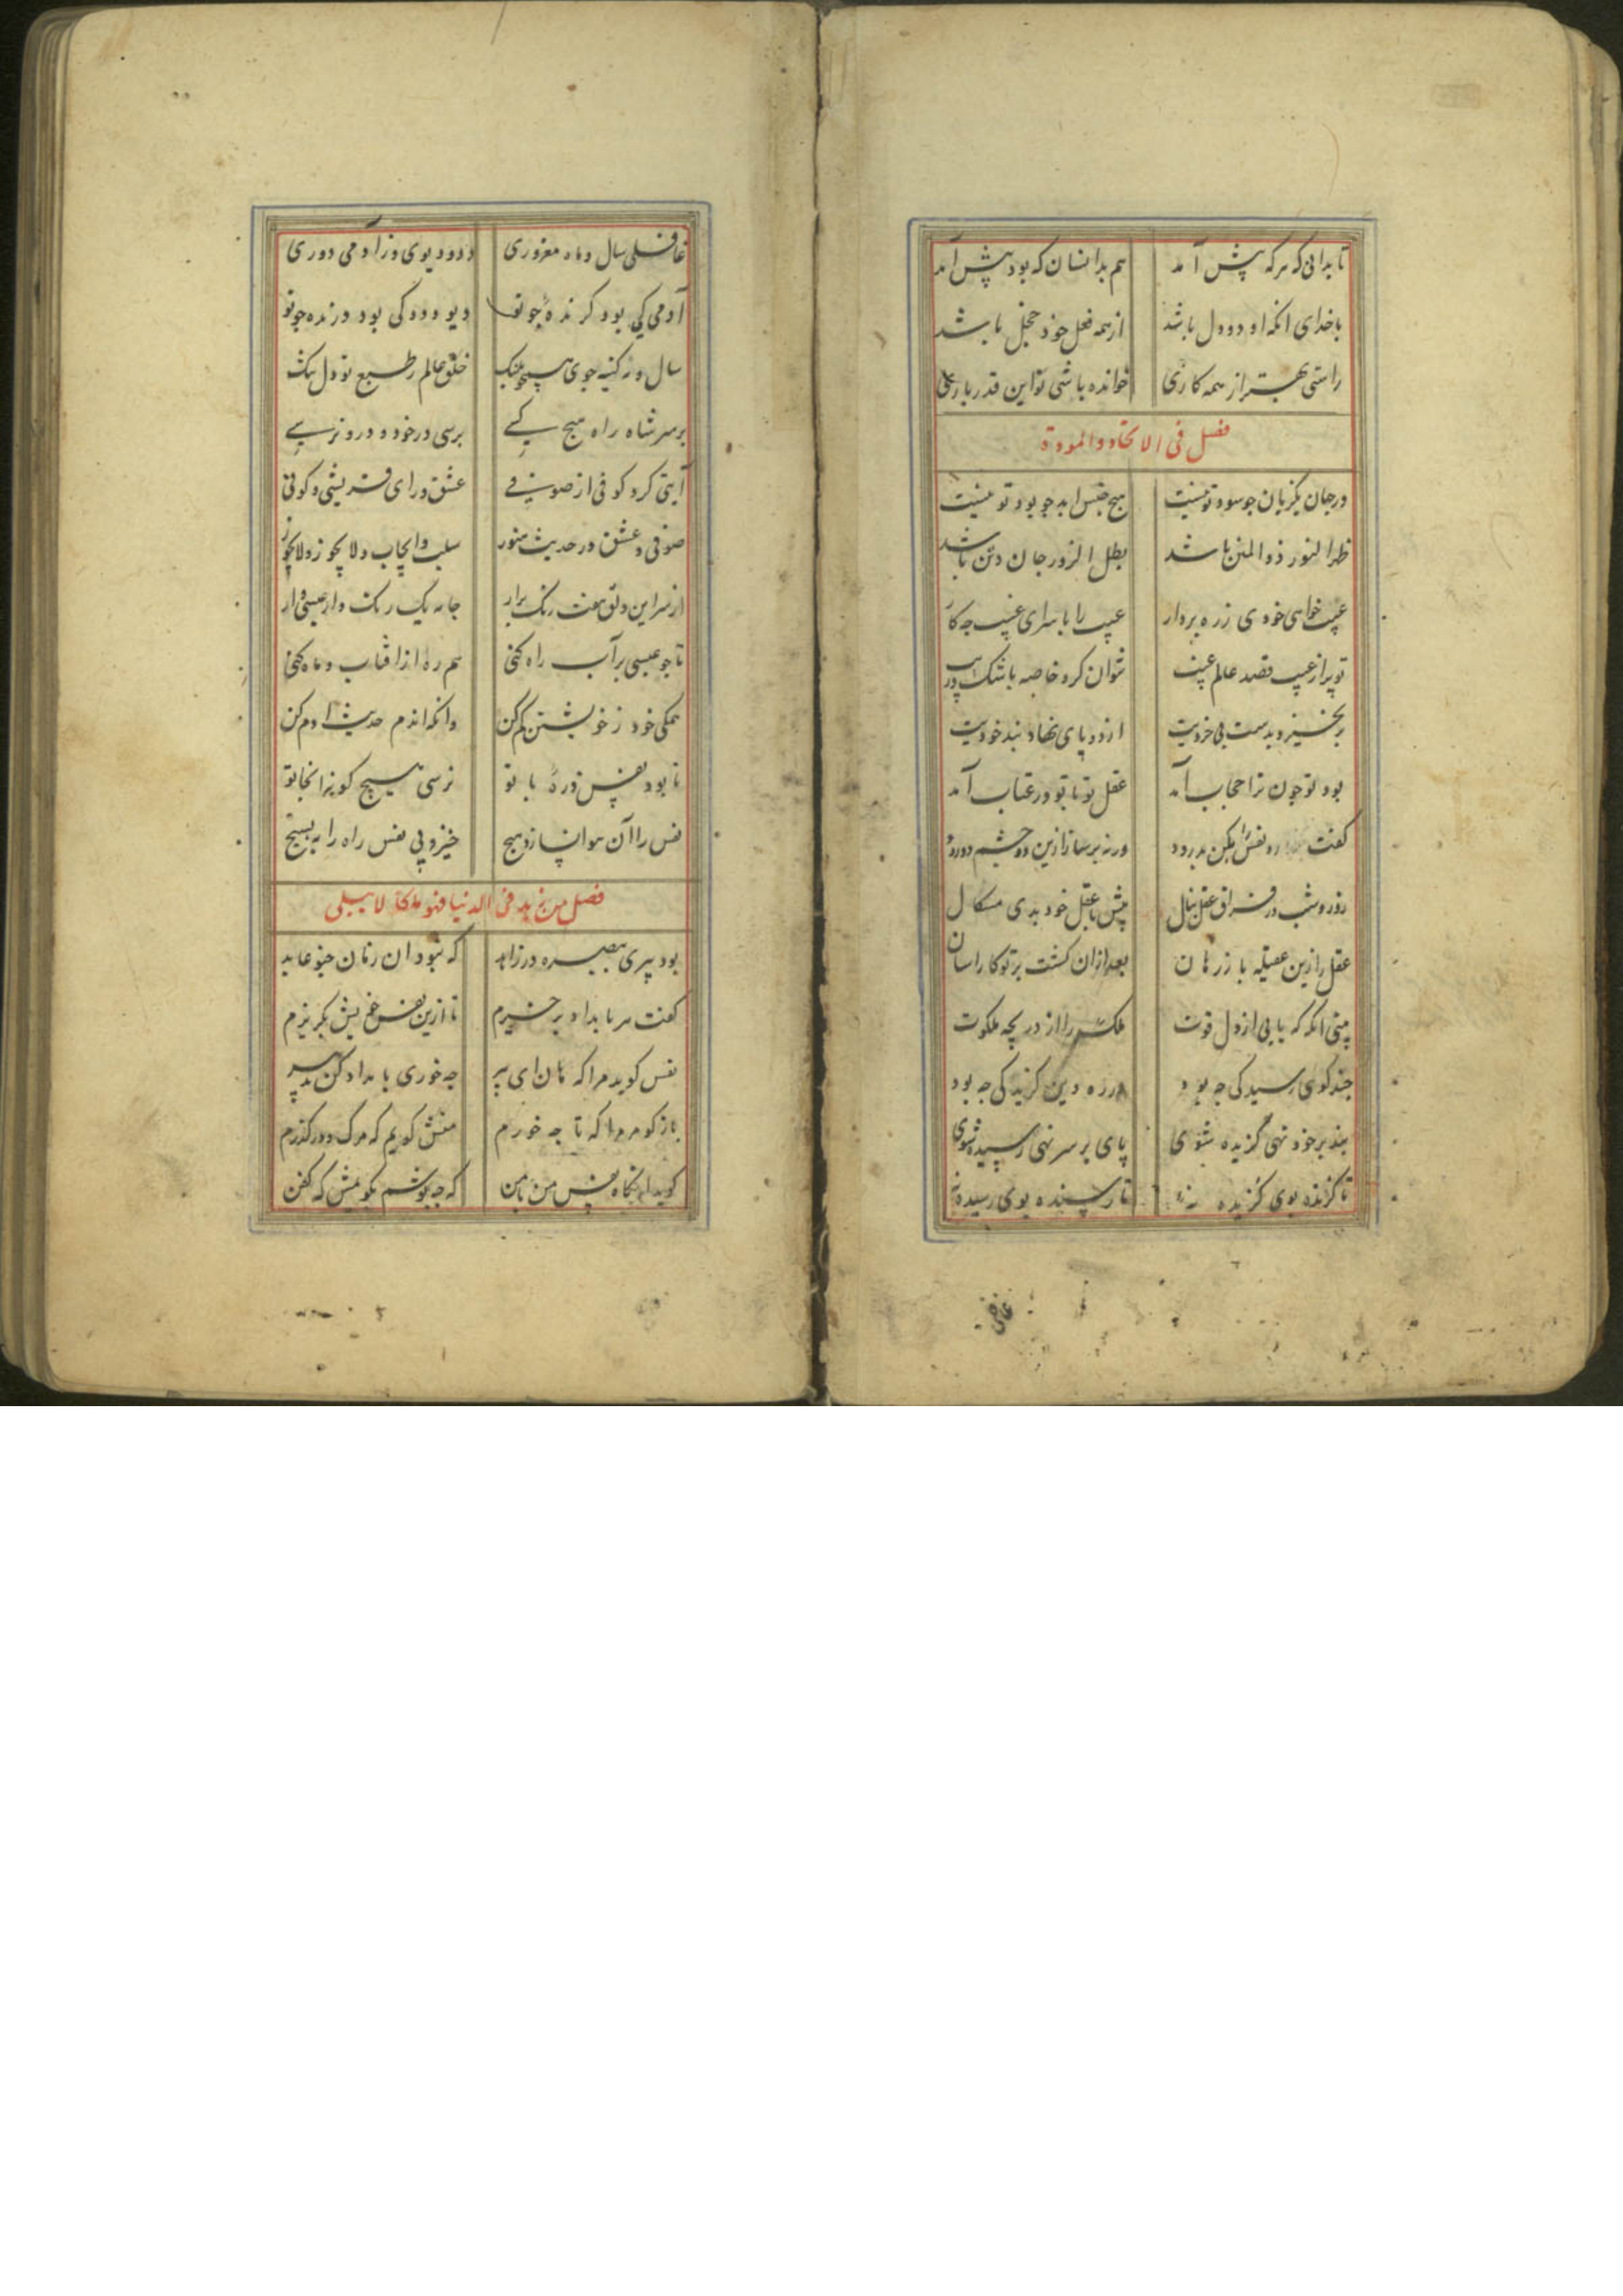 تا بدانی که هرکه پیش آمد هم بدانسان که بود پیش آمد
با خدای انکه او دودل باشد از همه فعل خود خجل باشد
راستی بهتر از همه کاری خوانده باشی تو این قدر باری
فصل فی الاتحاد والمودة
در جهان یکزبان جو سوسه تو نیست هیج جنس ابد جو بود تو نیست
ظهر النور ذو المنن باشد بطل الزور جان و تن باشد
عیب خواهی خودی ز ره بردار عیب را با سرای غیب جه کار
تو پر از عیب و قصد عالم غیب نتوان کرد خاصه با شک و ریب
برنخیزد بدست بی خردیت از دو پای نهاد بند خودیت
بود تو جون ترا حجاب آمد عقل تو با تو در عتاب آمد
کفت رو نفس را بکن بدرود ورنه برساز ازین دو چشم دو رود
روز و شب در فراق عقل بنال بیش با عقل خود بدی مسکال
عقل را زین عقیله باز رهان بعد از آن کشت بر تو کار اسان
بینی انکه که یابی از دل قوت ملک را از دریچه ملکوت
جند کوی رسیدکی جه بود در ره دین کزیدکی جه بود
بند بر خود نهی گزیده شوی پای بر سر نهی رسیده شوی
تا کزنده بوی کزیده نه تا رسنده بوی رسیده نه
غافلی
غافلی سال و ماه مغروری دد و دیوی و ز آدمی دوری
آدمی کی بود کزنده چو تو دیو و دد کی بود درنده جو تو
سال و مه کینه جوی همچو پلنک خلق عالم ز طبع تو دل تنک
بر سر شاه راه هیج کسی برسی در خود و درو نرسی
آیتی کرد کوفی از صوفی عشق ورای قریشی و کوفی
صوفی و عشق و در حدیث هنوز سلب و ایجاب و لا یجوز و لا یجوز
از سر این دلق هفت رنک برار جامه یک رنک دار عیسی وار
تا جو عیسی بر آب راه کنی همره از افتاب و ماه کنی
همکی خود ز خویشتن کم کن وانکه اندم حدیث ادم کن
تا بود نفس ذره با تو نرسی هیج کونه انجا تو
نفس را آن هوا نسازد هیج خیز و بی نفس راه را بسیج
فصل من زهد فی الدنیا فهو ملکا لا یبلی
بود پیری ببصره در زاهد که نبود ان زمان جنو عابد
کفت هر بامداد برخیزم تا ازین نفس خویش بکریزم
نفس کوید مرا که هان ای پیر جه خوری بامداد کن تدبیر
باز کو مر مرا که تا جه خورم منش کویم که مرک و در کذرم
کوید انکاه نفس من با من که جه پوشم بکویمش که کفن